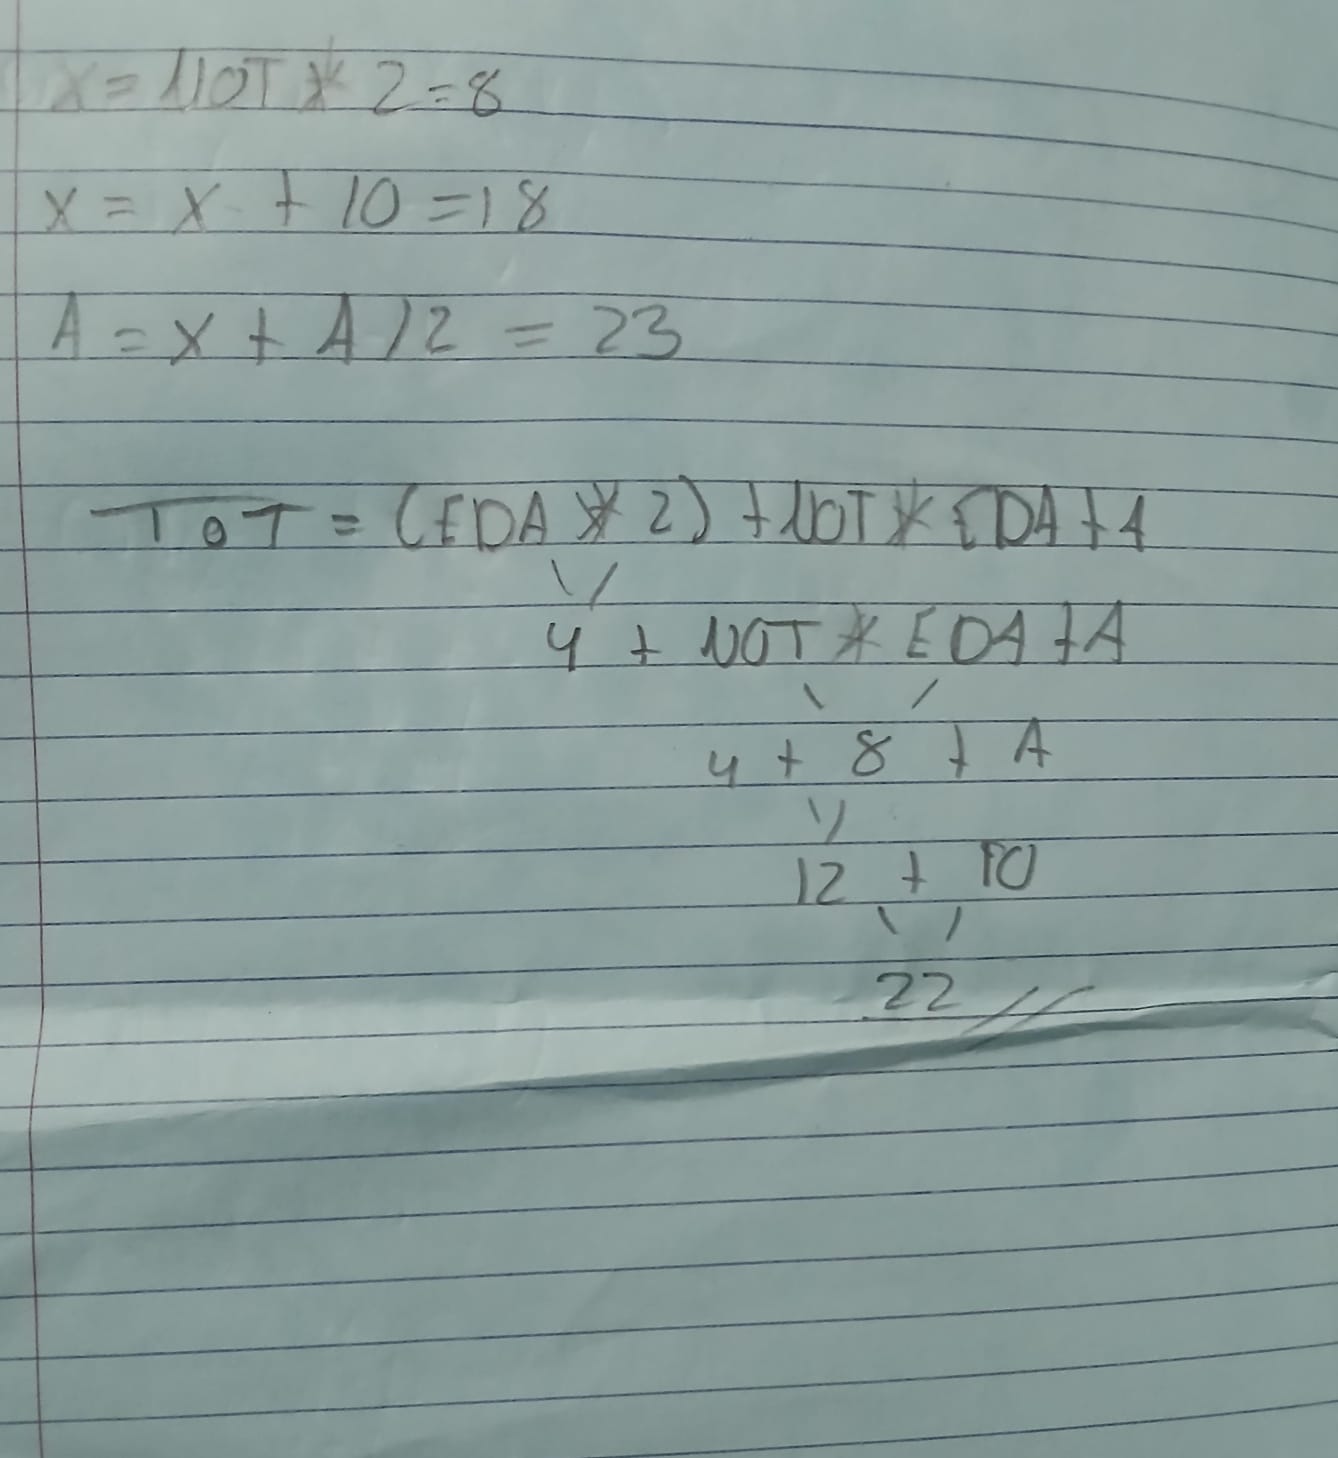 X = NOT * 2 = 8
X = X + 10 = 18
A = X + A / 2 = 23
TOT = (EDA * 2) + NOT * EDA + A
4 + NOT * EDA + A
4 + 8 + A
12 + 10
22